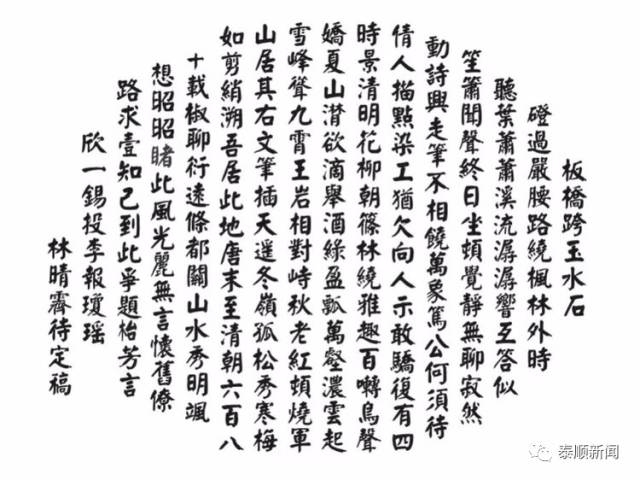 板橋跨玉水石
磴過嚴腰路繞楓林外時
聽葉蕭蕭溪流潺潺響互答似
笙簫聞聲終日坐頓覺靜無聊寂然
動詩興走筆不相饒萬象篤公何須待
倩人描點染工猶欠向人示敢驕復有四
時景清明花柳朝篠林繞雅趣百囀鳥聲
嬌夏山潸欲滴舉酒綠盈瓢萬壑濃雲起
雪峰聳九霄王岩相對峙秋老紅頓燒軍
山居其右文筆插天遥冬嶺孤松秀寒梅
如剪綃溯吾居此地唐末至清朝六百八
十載椒聊衍遠條都關山水秀明颯
想昭昭睹此風光麗無言懷舊僚
路求壹知己到此爭題枱芳言
欣一錫投李報瓊瑶
林晴霽待定稿
泰顺新闻